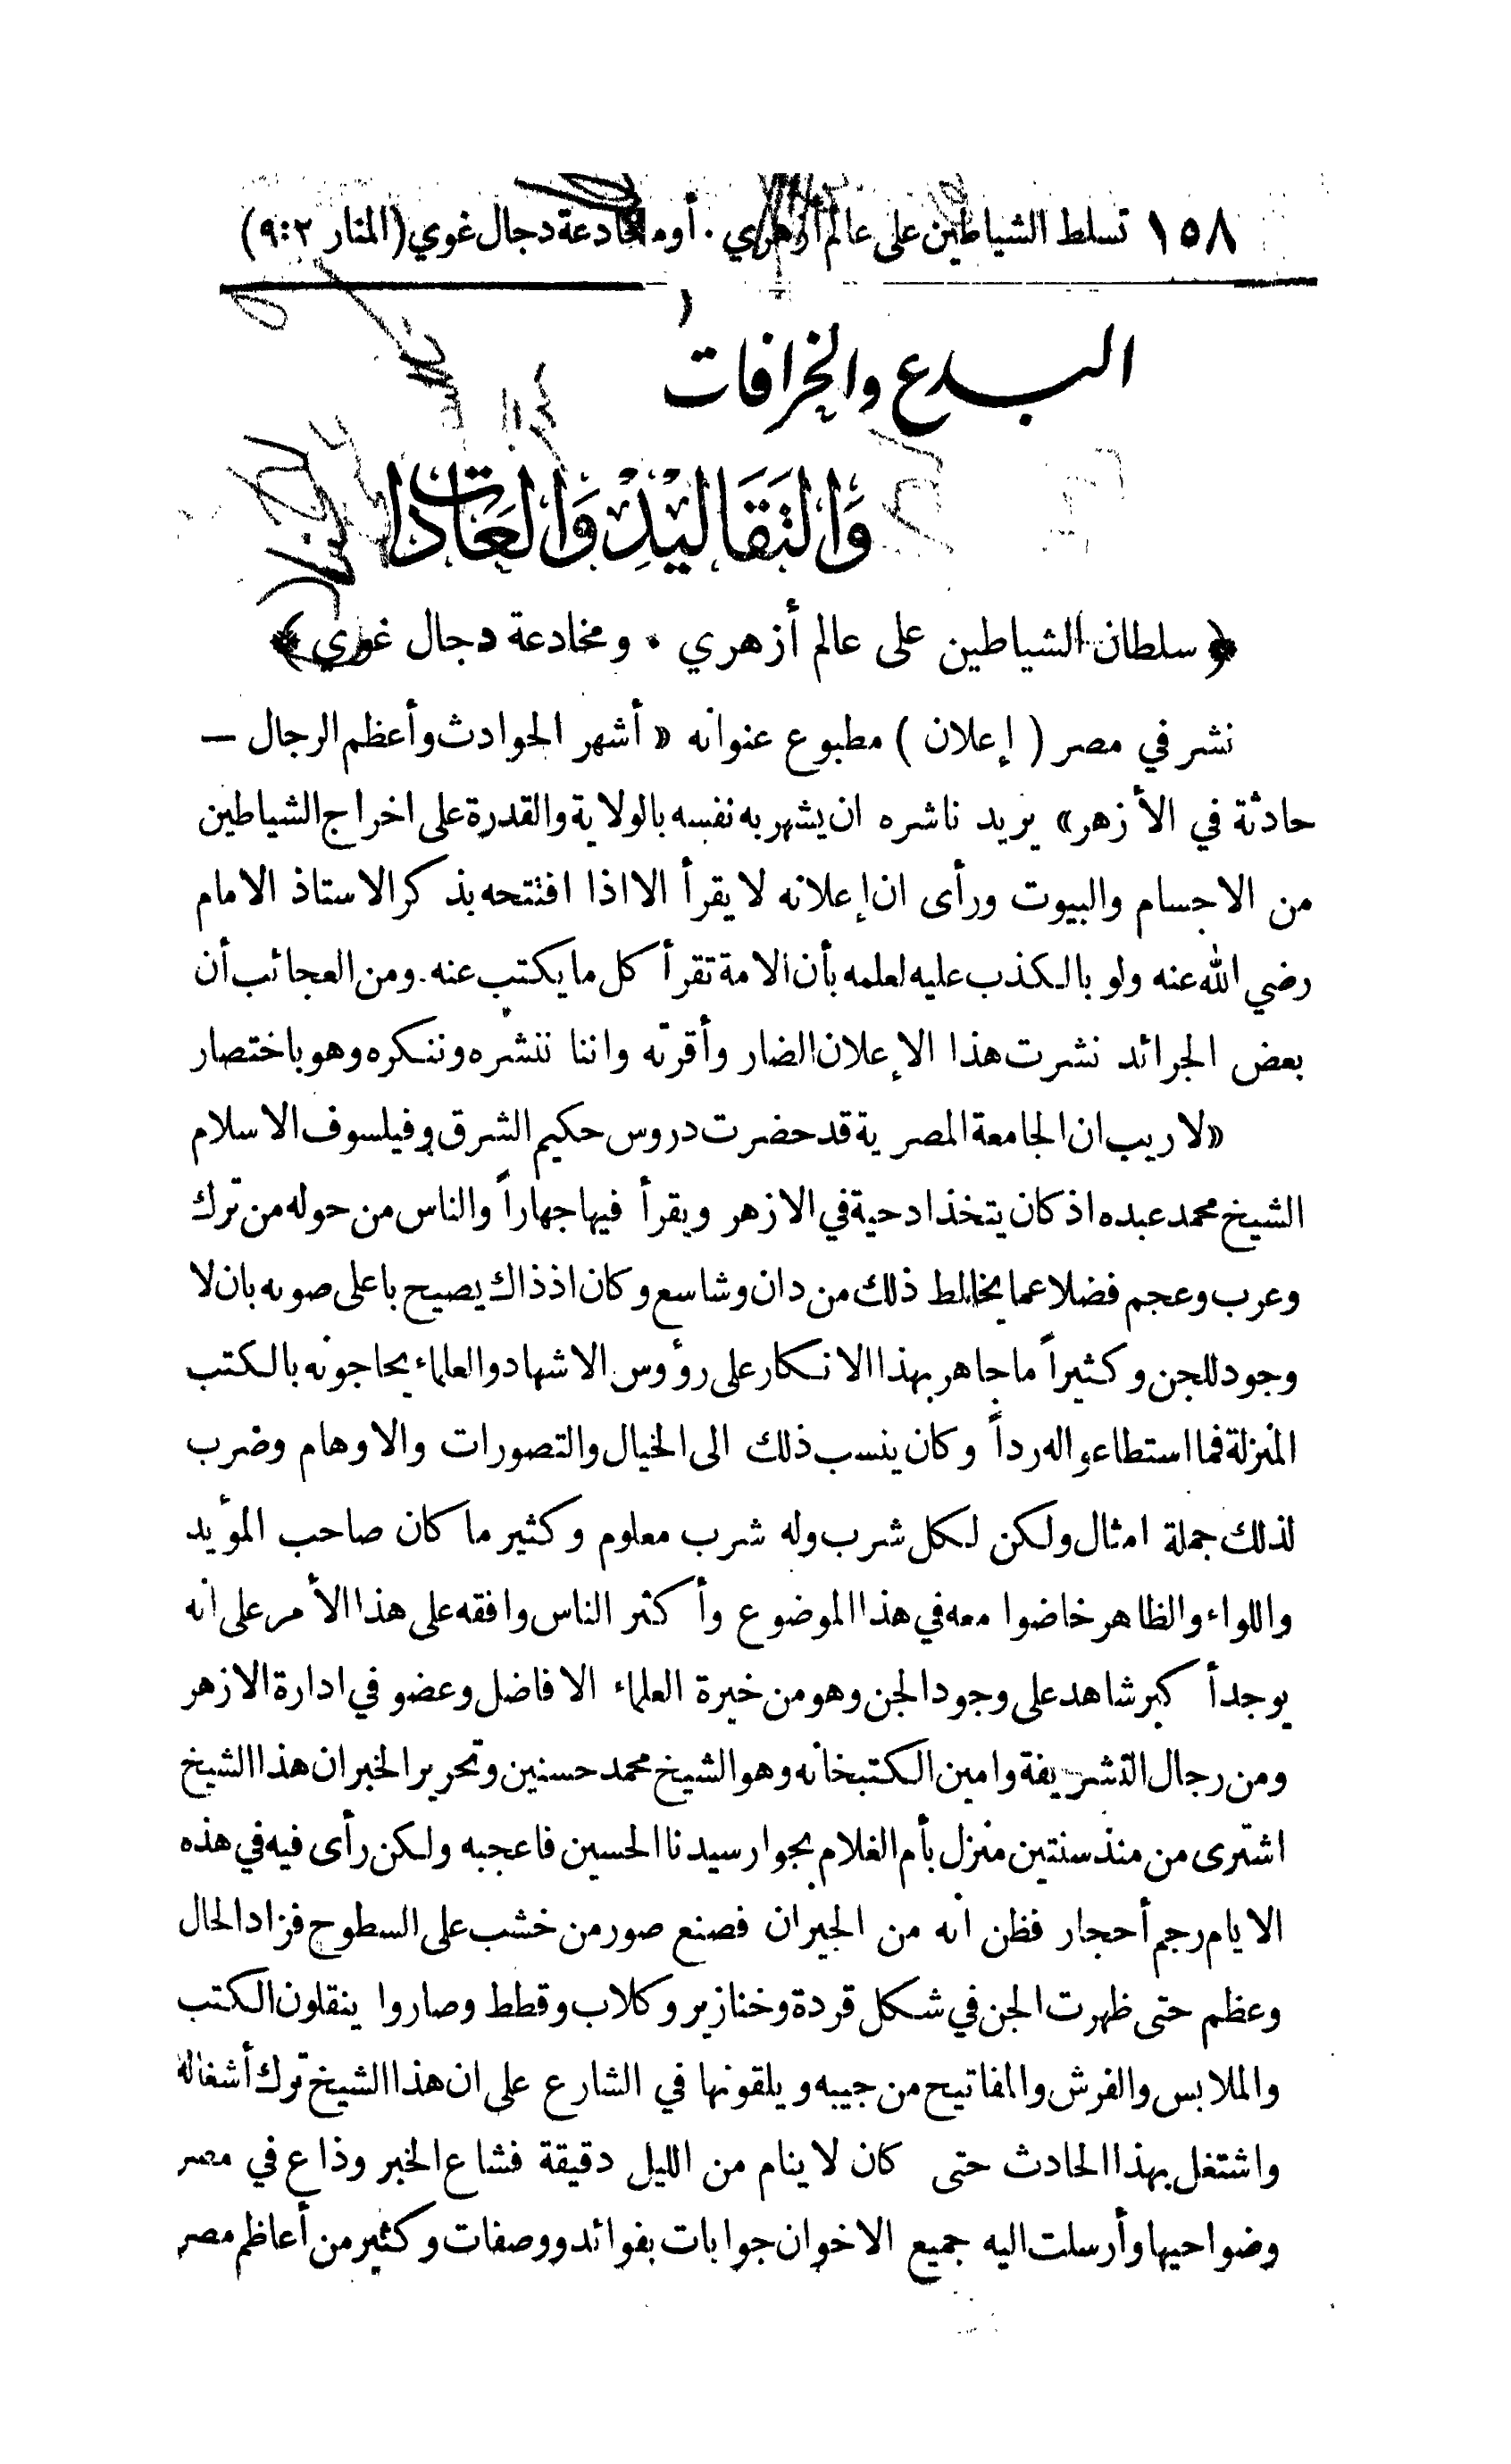 ١٥٨ تسلط الشياطين على عالم أزهري . أو مخادعة دجال غوي (المنار ٩:٢)
البدع والخرافات
وَالتَقَاليْدِ وَالعَادات
﴿ سلطان الشياطين على عالم أزهري . ومخادعة دجال غوي ﴾
نشر في مصر ( إعلان ) مطبوع عنوانه « أشهر الحوادث وأعظم الرجال —
حادثة في الأزهر» يريد ناشره ان يشهر به نفسه بالولاية والقدرة على اخراج الشياطين
من الاجسام والبيوت ورأى ان إعلانه لا يقرأ الا اذا افتتحه بذكر الاستاذ الامام
رضي الله عنه ولو بالكذب عليه لعلمه بأن الامة تقرأ كل ما يكتب عنه. ومن العجائب أن
بعض الجرائد نشرت هذا الإعلان الضار وأقرته واننا ننشره وننكره وهو باختصار
«لا ريب ان الجامعة المصرية قد حضرت دروس حكيم الشرق وفيلسوف الاسلام
الشيخ محمد عبده اذ كان يتخذ ادحية في الازهر ويقرأ فيها جهاراً والناس من حوله من ترك
وعرب وعجم فضلا عما يخالط ذلك من دان وشاسع وكان اذ ذاك يصيح باعلى صوته بان لا
وجود للجن وكثيراً ما جاهر بهذا الانكار على رؤوس الاشهاد والعلماء يحاجونه بالكتب
المنزلة فما استطاعوا له رداً وكان ينسب ذلك الى الخيال والتصورات والاوهام وضرب
لذلك جملة امثال ولكن لكل شرب وله شرب معلوم وكثير ما كان صاحب المؤيد
واللواء والظاهر خاضوا معه في هذا الموضوع وأكثر الناس وافقه على هذا الأمر على انه
يوجد أكبر شاهد على وجود الجن وهو من خيرة العلماء الافاضل وعضو في ادارة الازهر
ومن رجال التشريفة وامين الكتبخانه وهو الشيخ محمد حسنين وتحرير الخبر ان هذا الشيخ
اشترى من منذ سنتين منزل بأم الغلام بجوار سيدنا الحسين فاعجبه ولكن رأى فيه في هذه
الايام رجم أحجار فظن انه من الجيران فصنع صور من خشب على السطوح فزاد الحال
وعظم حتى ظهرت الجن في شكل قردة وخنازير وكلاب وقطط وصاروا ينقلون الكتب
والملابس والفرش والمفاتيح من جيبه ويلقونها في الشارع على ان هذا الشيخ ترك أشغاله
واشتغل بهذا الحادث حتى كان لا ينام من الليل دقيقة فشاع الخبر وذاع في مصر
وضواحيها وأرسلت اليه جميع الاخوان جوابات بفوائد ووصفات وكثير من أعاظم مصر